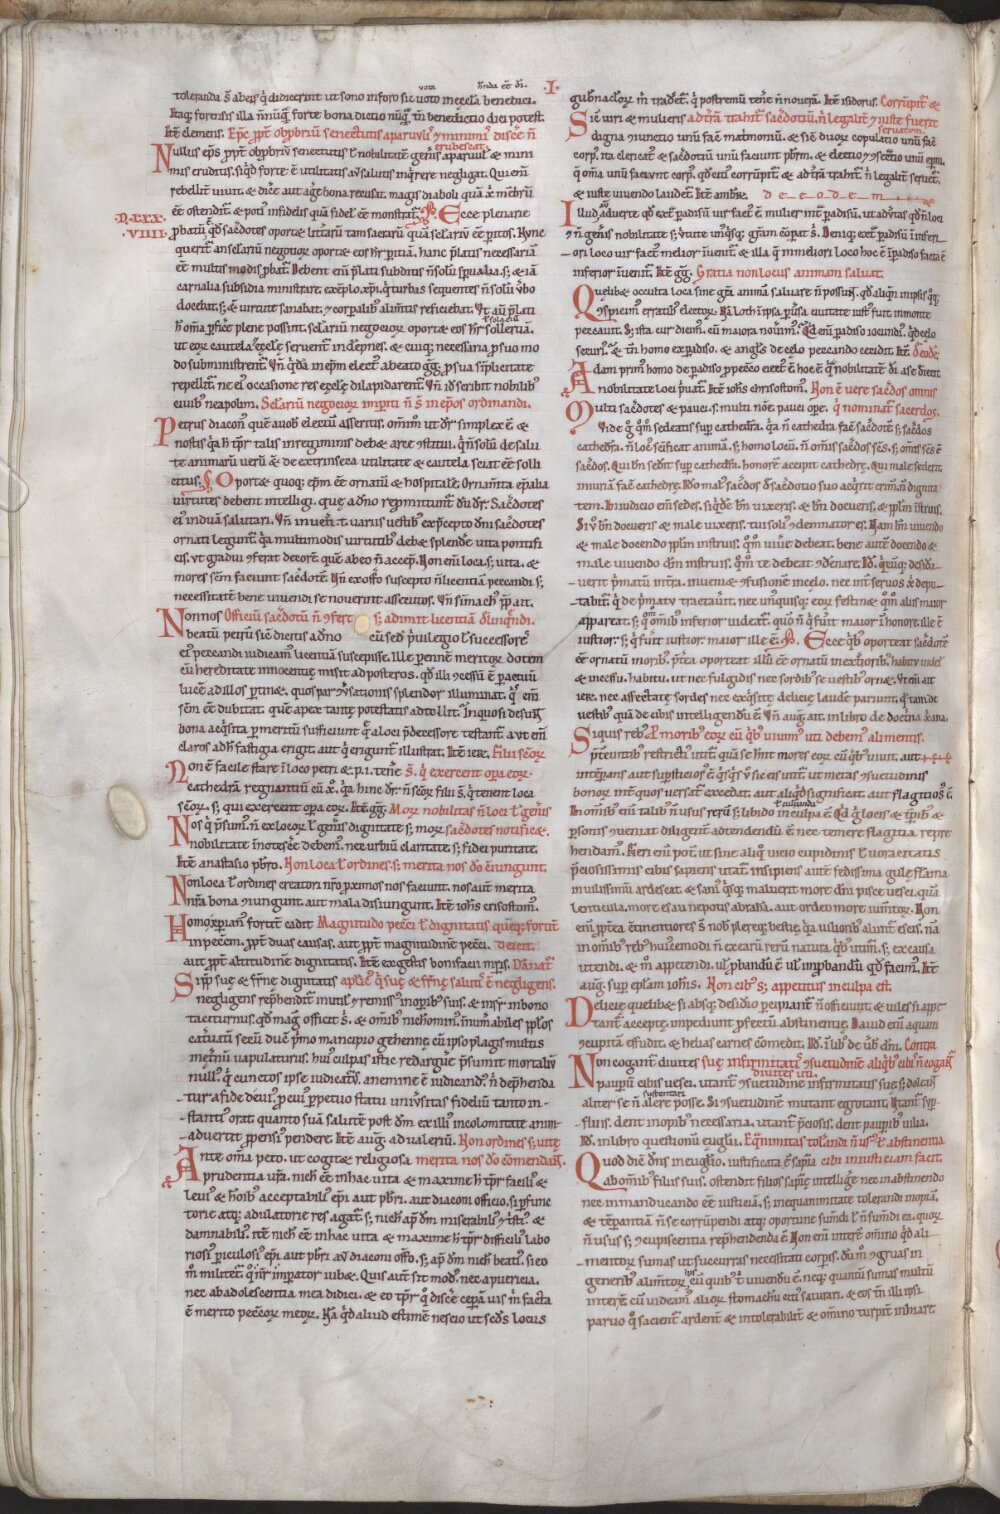 toleranda s; abeis q̇ didicerint ut sono inforo sic uoto mecc̨la benedici.
Itaq; forensis illa nūnq̄ forte bona dictio nūq̄ tn̄ benedictio dici potest.
Itē clemens. Ep̄c ꝓpt̄ obprƀriū senectutis
Nullus ep̄s ꝓpt̄ obprƀriū senectutis ł nobilitatē gen̄is aparuuł & mini
mis eruditis. siq̇d forte ē utilitatis aut salutis inq̇rere negligat. Qui em̄
rebellit̄ uiuit. & dic̄e aut aḡe bona recusat. magis diaboli quā xp̄i mēbrū
ēē ostendit̄ & poti' infidelis quā fidel' ēē monstrat̄. Ecce plenarie
D. XXX.
VIIII.
ꝓbatū q̇d saēdotes oportet litt̄arū tam sacrarū quā seculariū ēē peritos. Hunc
querit̄ an seculariū negotiorū oporteat eos hr̄e peritiā. hanc p̄latis necessariā
ēē multis modis ꝓbat̄. Debent em̄ p̄lati subditis n̄ solū spūalia. s; & iā
carnalia subsidia ministrare. exēplo xp̄i. q̇ turbis sequentes n̄ solū ūbo
docebat. s; & uirtute sanabat. & corꝑalib' alimtis reficiebat. Vt au p̄lati
h̄ om̄a ꝑfic̄e plene possint. seculariū negotiorū oportet eos hr̄e sollertiā.
ut eorū cautela eccle seruent̄ indēpnes. & cuiq; necessaria ꝓ suo mo
do subministrent̄. Vn̄ q̇dā in ep̄m elect' abeato GG ꝓ sua simplicitate
repellit̄. ne ei' occasione res eccle dilapidarent̄. Vn̄ id scribit nobilib'
ciuib' neapolim. Seculariū negotiorū imꝑiti n̄ s̄ in ep̄os ordinandi.
Petrus diacon' quē a uob̄ electū asseritis. omīno ut dr̄ simplex ē &
nostis q̇a h̄ tp̄r talis in regiminis debet arce cstitui. q̇ n̄ solū de salu
te animarū uerū & de extrinseca utilitate & cautela sciat ēē solli
citus. Oportet quoq; ep̄m ēē ornatū & hospitalē. Ornam̄ta ep̄alia
uirtutes debent intelligi. quę ad n̄o repmittunt̄ dū dr̄. Saēdotes
ei' induā salutari. Vn̄ in uet̄i t. uariis uestib' ex p̄cepto dn̄i saēdotes
ornati legunt̄. q̇a multimodis uirtutib' debet splend̄e uita pontifi
cis. ut gradui cferat decorē. quē ab eo n̄ accep̄. Non em̄ loca. s; uita. &
mores scm̄ faciunt saēdotē. Vn̄ ex offo suscepto n̄ licentiā peccandi s;
necessitatē bene uiuendi se nouerint assecutos. Vn̄ simach' p̄p ait.
Non nos Officiū saēdotū n̄ cfert s; adimit licentiā
beatū petrū sic̄ dictis a dn̄o cū sed' p̄uilegio ł successores
ei' peccandi iudicam' licentiā suscepisse. Ille ꝑennē meritorū dotem
cū hereditate innocentię misit ad posteros. qd illi cessū ē ꝑ actuū
lucē ad illos ꝑtinet. quos par cūsationis splendor illuminat. q̇ em̄
scm̄ ēē dubitat. quē apex tantę potestatis adtollit. In quo si desunt
bona acq̇sita ꝑ meritū sufficiunt q̇ aloci p̄decessore testant̄ aut em̄
claros ad h̄ fastigia erigit. aut q̇ erigunt̄ illustrat. Itē iere. Filii scorū
Non ē facile stare ī loco petri & p. i tene s̄. q̇ exercent opa eorū.
cathedrā regnantiū cū x̄. q̇a hinc dr̄. n̄ scorū filii s̄. q̇ tenent loca
scorū. s; qui exercent opa eorū. Itē GG. Morū nobilitas n̄ loci ł gen̄is
Nos q̇ p̄sum'. n̄ ex locorū ł gen̄is dignitate s; morū saēdotes notificet.
nobilitate īnotesc̄e debem'. nec urbiū claritate. s; fidei puritate.
Itē anastasio pbr̄o. Non loca ł ordines. s; merita nos d̄o c̄iungunt.
Non loca ł ordines creatori nr̄o ꝓximos nos faciunt. nos aut̄ merita
nr̄a bona ciungunt. aut mala disiungunt. Itē ioh̄s crisostom'.
Homo xp̄ian' fortit̄ cadit Magnitudo pecci ł dignitatis quēq; fortit̄
in peccm̄. ꝓpt̄ duas causas. aut ꝓpt̄ magnitudinē pecci. deicit.
aut ꝓpt̄ altitudinē dignitatis. Itē ex gestis bonifacii
Si p̄p suę & fr̄nę dignitatis
negligens rep̄hendit̄ inutil' & remiss' in operib' suis. & insup̄ in bono
taciturnus. qd mag' officit s;. & omīb' nich' omin'. innum̄abiles pp̄los
cat̄uatī secū ducit p̄mo mancipio gehennę cū ipso plagis multis
inęt̄nū uapulaturus. hui' culpas istic redargu̇e p̄sumit mortaliū
null'. q̇a cunctos ipse iudicatur'. a nemine ē iudicand'. n̄ dep̄henda
tur a fide deui'. ꝓ cui' ꝑpetuo statu uniūsitas fideliū tanto in
stanti' orat. quanto suā salutē post dm̄ ex illi' incolomitate anim
aduertit ꝓpensi' pendere. Itē aug. ad ualeriū. Non ordines s; uitę
Ante om̄a peto. ut cogitet religiosa merita nos d̄o cōmendant.
prudentia ur̄a. nich' ēē in hac uita & maxime h̄ tp̄r facili' &
leui' & ho̅ib' acceptabili' ep̄i. aut pb̄ri. aut diaconi officio. si ꝑfunc
torie atq; adulatorie res agat̄. s; nich' ap̄ dm̄ miserabili' & tsti' &
damnabili'. itē nich' ēē in hac uita & maxime h̄ tp̄r difficili' labo
riosi' periculosi' ep̄i. aut pb̄ri aut diaconi offo. s; ap̄ dm̄ nich' beati'. si eo
m̄ militet̄ q̊ nr̄ imperator iubet. Quis aut̄ sit mod'. nec a puericia.
nec ab adolescentia mea didici. & eo tp̄r q̊ disc̄e cepā uis m̄ facta
ē merito peccorū meorū. Nā q̇d aliud estimē nescio ut scds locus
I
gub̄naclorū m̄ trad̄et̄. q̇ postremū tene n̄ nouerā. Itē isidorus. Corrūpit̄ &
Sic̄ uiri & mulieris ad ct̄rā trahit̄ saēdotiū. n̄ legalit̄ & iuste fuerit
digna ciunctio unū fac̄ matm̄oniū. & sic̄ duorū copulatio unū fac̄
corp'. ita clericat' & saēdotiū unū faciunt pb̄rm. & electio & csecratio unū ep̄m.
q̇ om̄a unū faciunt corp'. qd cit' corrūpit̄ & ad ct̄rā trahit̄. n̄ legalit̄ seruet̄.
& iuste uiuendo laudet̄. Itē ambr̄. d e e o d e m
Illud aduerte qd ext̄ paradisū uir fact' ē mulier int̄ paradisū. ut aduertas qd n̄ loci
& n̄ gen̄is nobilitate s; ūtute unusq'sq; grām cōparat s'. Deniq; ext̄ paradisū ī inferi
ori loco uir fact' melior īuenit̄. & illa q̄ in meliori loco hoc ē ī paradiso facta ē
inferior īuenit̄. Itē GG. Gratia non locus animam saluat.
Quęlibet occulta loca sine gr̄a animā saluare n̄ possunt. qd aliqn̄ in ipsis q̇q;
cspicim' erratib' electorū. Nā Loth ī ipsa ꝑuersa ciuitate iust' fuit. in monte
peccauit. S; ista cur dicim'. cū maiora nouim'. Qd em̄ paradiso iocundi'. q̇d celo
securi'. & tn̄ homo ex paradiso. & angls de celo peccando cecidit. Itē
Adam prim' homo de paradiso ꝓ pecco eiect' ē hoc ē
nobilitate loci p̄uat̄. Itē ioh̄s chrisostom'. Non ē uere saēdos omnis
Multi saēdotes & pauci. s; multi noīe pauci opere. q̇ nominat̄ sacerdos.
Videte ḡ q̊m sedeatis sup̄ cathedrā. q̇a n̄ cathedra fac̄ saēdotē s; saēdos
cathedrā. n̄ loc' scificat animā. s; homo locū. n̄ omīs saēdos scs. s; omīs scs ē
saēdos. Qui bn̄ sedit sup̄ cathedrā. honorē accipit cathedrę. Qui male sederit.
iniuriā fac̄ cathedrę. Ido mal' saēdos de saēdotio suo acq̇rit crim̄ n̄ dignita
tem. In iudicio em̄ sedes. siq̇de bn̄ uixeris. & bn̄ docueris. & pplm īstruis.
Si ū bn̄ docueris & male uixeris. tui soli' cdemnator es. Nam bn̄ uiuendo
& male docendo pplm instruis. q̊m uiu̇e debeat. bene aut̄ docendo &
male uiuendo dm̄ instruis. q̊m te debeat cdēnare. Id. q̇cūq; desida
uerit p̄matū int̄ra. inueniet cfusionē in celo. nec int̄ seruos x̄ depu
tabit̄. q̇ de p̄matu tractauit. nec unusquisq; eorū festinet q̊m aliis maior
appareat. s; q̊m omīb' inferior uideat̄. quo n̄ q̇ fuit maior ī honore. ille ē
iustior. s; q̇ fuit iustior. maior ille ē. Ecce q̇b' oporteat saēdotē
ēē ornatū morib'. p̄t̄ea oporteat illū ēē ornatū in ext̄iorib'. habitu uidelicet
& incessu. habitu. ut nec fulgidis nec sordib' se uestib' ornet. Vt em̄ ait
iere. nec affectatę sordes nec exq̇sitę delicię laudē pariunt. q̇ tam de
uestib' quā de cibis intelligendū ē. Vn̄ aug. ait in libro de doct̄na x̄ana.
Siquis reb' Et morib' eorū cū q̇b' uiuim' uti debem' alimentis.
p̄t̄euntib' restricti' utit̄ quā se hn̄t mores eorū cū q̇b' uiuit. aut
int̄ep̄ans aut sup̄sticios' ē. q̇sq's ū sic eis utit̄ ut metas csuetudinis
bonorū int̄ quos uersat̄ excedat. aut aliq̇d significat. aut flagitios' ē.
In omīb' em̄ talib' n̄ usus rerū s; libido in culpa ē. Qd ḡ locis & tp̄rib' &
ꝑsonis cueniat diligent̄ adtendendū ē nec temere flagitia repre
hendam'. Fieri em̄ pot̄. ut sine aliq̊ uicio cupidinis ł uoracitatis
p̄ciosissimis cibis sapiens utat̄. insipiens aut̄ fedissima gulę flāma
in uilissimū ardescat. & sani' q̇sq; maluerit more dn̄i pisce uesci. quā
lenticula. more esau nepotis abrahā. aut ordeo more iumtorū. Non
em̄ ꝓpt̄ea ctinentiores s̄ nob' plereq; bestię. q̇a uiliorib' aliunt̄ escis. nā
in omīb' reb' hui'cemodi n̄ ex earū rerū natura q̇b' utim'. s; ex causa
utendi. & m̄ appetendi. ut ꝓbandū ē uł improbandū qd facim'. Itē
aug. sup̄ ep̄lam ioh̄is. Non cib' s; appetitus in culpa est.
Delicię quęlibet si absq; desid̄io ꝑcipiant̄ n̄ officiunt. & uiles si appe
tant̄ acceptę. impediunt ꝓfectū abstinentię. Dauid em̄ aquam
cupitā effudit. & helias carnes cōmedit. Id. ī lib' de ūb' dn̄i. Contra
Non cogant̄ diuites suę infirmitati' csuetudinē aliq̇b' cib' n̄ cogant̄
paupū cibis uesci. utant̄ csuetudine infirmitatis suę. s; doleant̄
aliter se n̄ alere posse. Si csuetudinē mutant egrotant. Vtant̄ sup̄
fluis. dent inopib' necessaria. utant̄ p̄ciosis. dent pauꝑib' uilia.
Id. in libro questionū euglii. Eq̇nimitas tolandi n̄ us' ł abstinentia
Quod dic̄ dn̄s in euglio. iustificata ē sapīa cibi in iusticiam facit.
abomīb' filiis suis. ostendit filios sapię intellig̊e nec in abstinendo
nec in manducando ēē iusticiā. s; in equanimitate tolerandi inopiā.
& tēꝑantiā n̄ se corrūpendi atq; oportune sum̄di ł n̄ sum̄di ea. quorū
n̄ usus s; cupiscentia rep̄hendenda ē. Non em̄ interē omnino q̇d ali
mentorū sumas ut succurras necessitati corp̄is. dūm cgruas in
generib' alimtorū his cū quib' t̄ uiuendū ē. neq; quantū sumas multū
interē. cū uideam' aliorū stomachū citi' saturari. & eos tn̄ illi ipsi
paruo q̊ saciant̄ ardent̄ & intolerabilit̄ & omīno turpit̄ inhiare